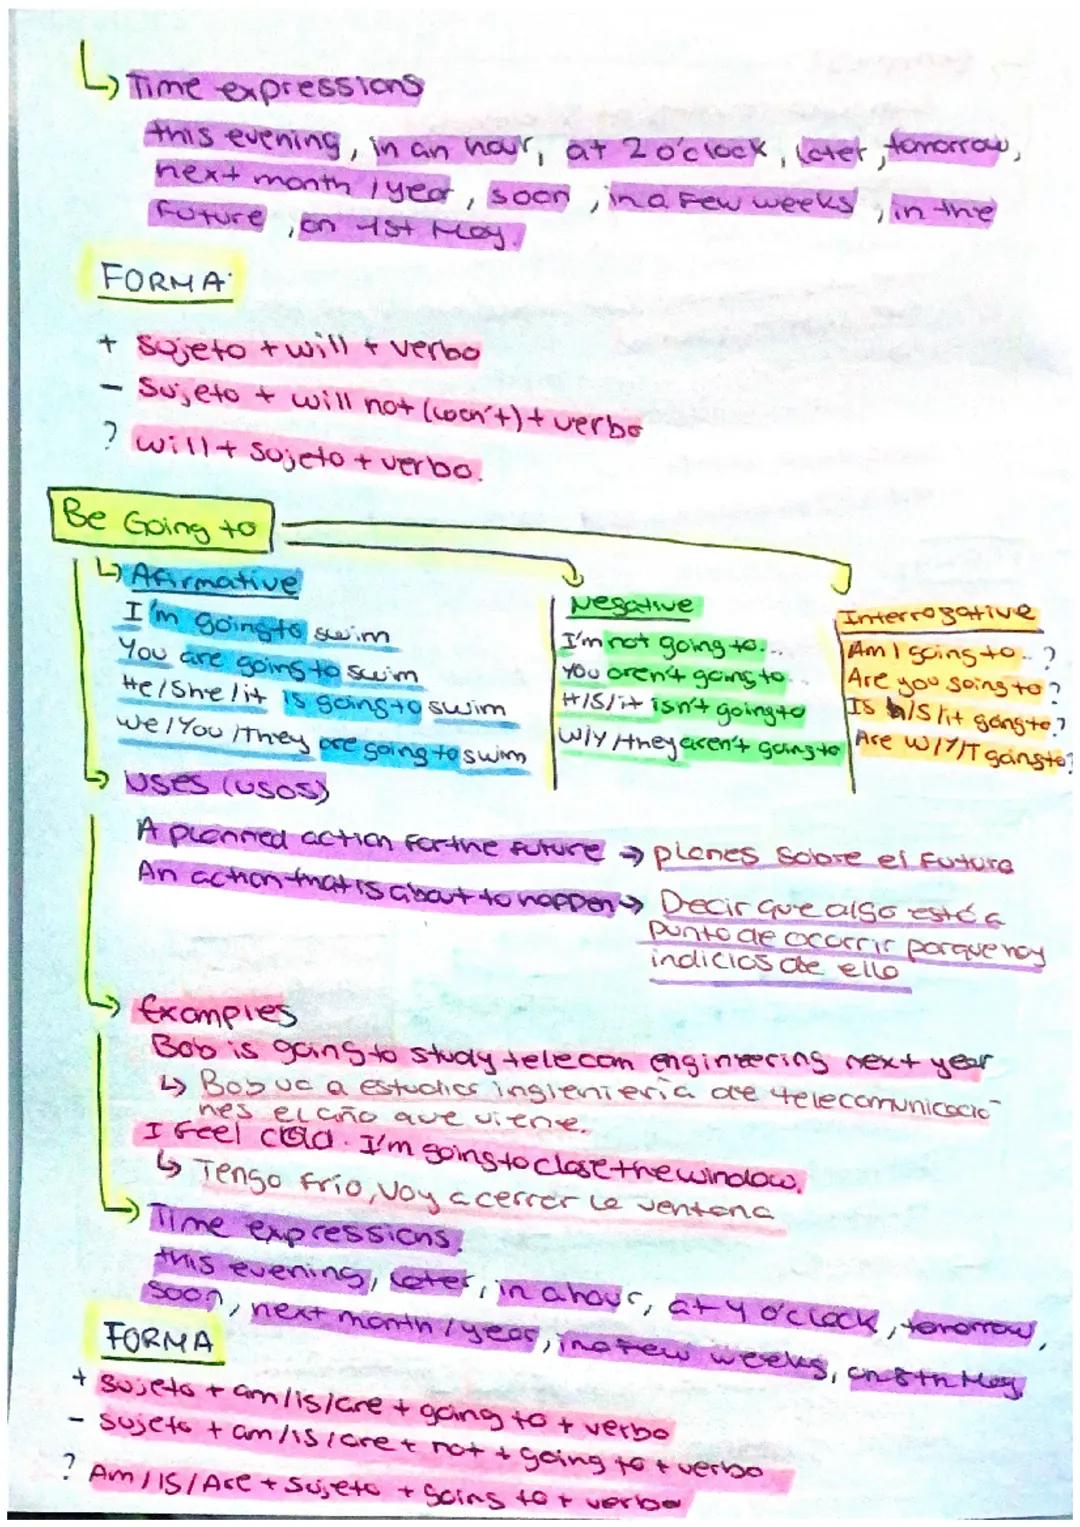 Time expressions
this evening, in an hour, at 2 o'clock, later, tomorrow,
next month / year, soon, in a few weeks, in the
future, on 1st May.
FORMA:
+ Sujeto + will + verbo
- Sujeto + will not (won't) + verbo
? will + Sujeto + verbo.
Be Going to
Afirmative
I'm going to swim
You are going to swim
He/She/it is going to swim
We/You/They are going to swim
Negative
I'm not going to...
You aren't going to...
H/S/it isn't going to
W/Y/they aren't going to
Interrogative
Am I going to..?
Are you going to?
Is h/S/it going to?
Are W/Y/T going to?
USES (USOS)
A planned action for the future → planes sobre el futuro
An action that is about to happen → Decir que algo está a
punto de ocurrir porque hay
indicios de ello
Examples
Bob is going to study telecom engineering next year
Bob va a estudiar ingieniería de telecomunicacio-
nes el año que viene.
I feel cold. I'm going to close the window.
Tengo frío, voy a cerrar la ventana
Time expressions.
this evening, later, in a hour, at 4 o'clock, tomorrow,
soon, next month / year, in a few weeks, on 8th May.
FORMA
+ Sujeto + am/is/are + going to + verbo
- Sujeto + am/is/are + not + going to + verbo
? Am/Is/Are + Sujeto + going to + verbo